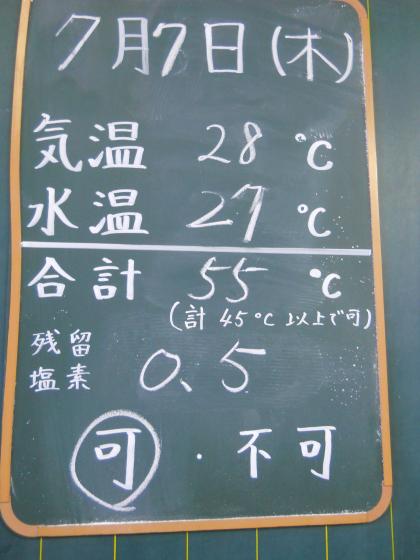 7月7日(木)
気温 28 ℃
水温 27 ℃
合計 55 ℃
(計 45℃ 以上で可)
残留
塩素 0.5
可 ・ 不可